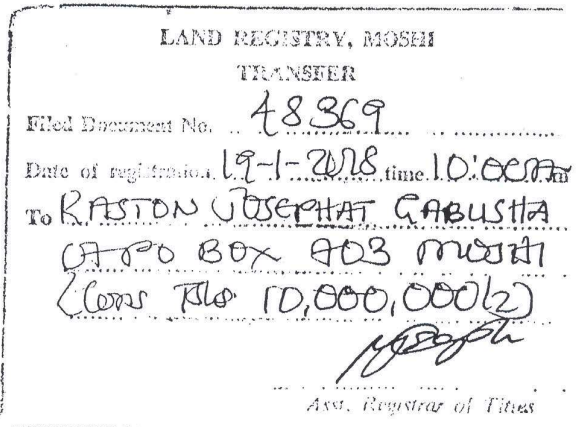 LAND REGISTRY, MOSHI
TRANSFER
Filed Document No. 48369
Date of registration 19-1-2018 time 10:00 Am
To RASTON JOSEPHAT GABUSHA
OF P.O BOX 903 MOSHI
(Cons Tshs 10,000,000/=)
Asst. Registrar of Titles